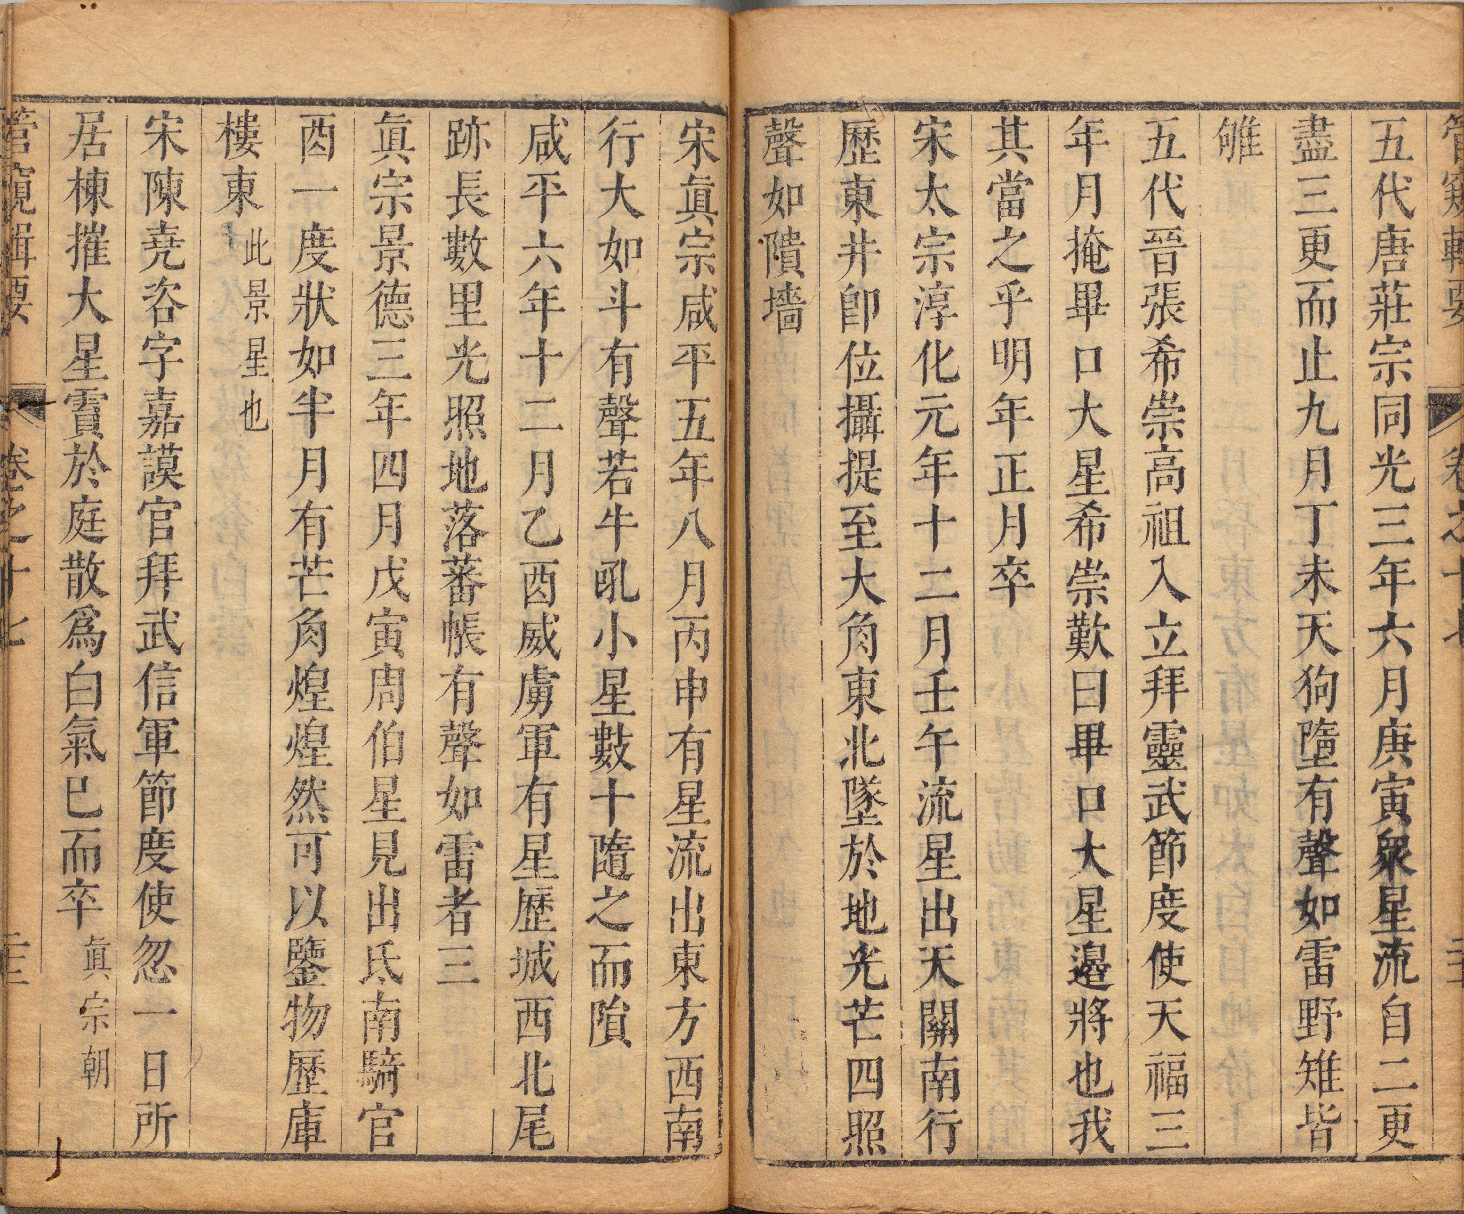 管窺輯要 卷之十七
五代唐莊宗同光三年六月庚寅衆星流自二更
盡三更而止九月丁未天狗墮有聲如雷野雉皆
雊
五代晉張希崇高祖入立拜靈武節度使天福三
年月掩畢口大星希崇歎曰畢口大星邊將也我
其當之乎明年正月卒
宋太宗淳化元年十二月壬午流星出天關南行
歷東井卽位攝提至大角東北墜於地光芒四照
聲如隤墻
宋眞宗咸平五年八月丙申有星流出東方西南
行大如斗有聲若牛吼小星數十隨之而隕
咸平六年十二月乙酉威虜軍有星歷城西北尾
跡長數里光照地落蕃帳有聲如雷者三
眞宗景德三年四月戊寅周伯星見出氐南騎官
酉一度狀如半月有芒角煌煌然可以鑒物歷庫
樓東此景星也
宋陳堯咨字嘉謨官拜武信軍節度使忽一日所
居棟摧大星霣於庭散爲白氣巳而卒眞宗朝
管窺輯要 卷之十七